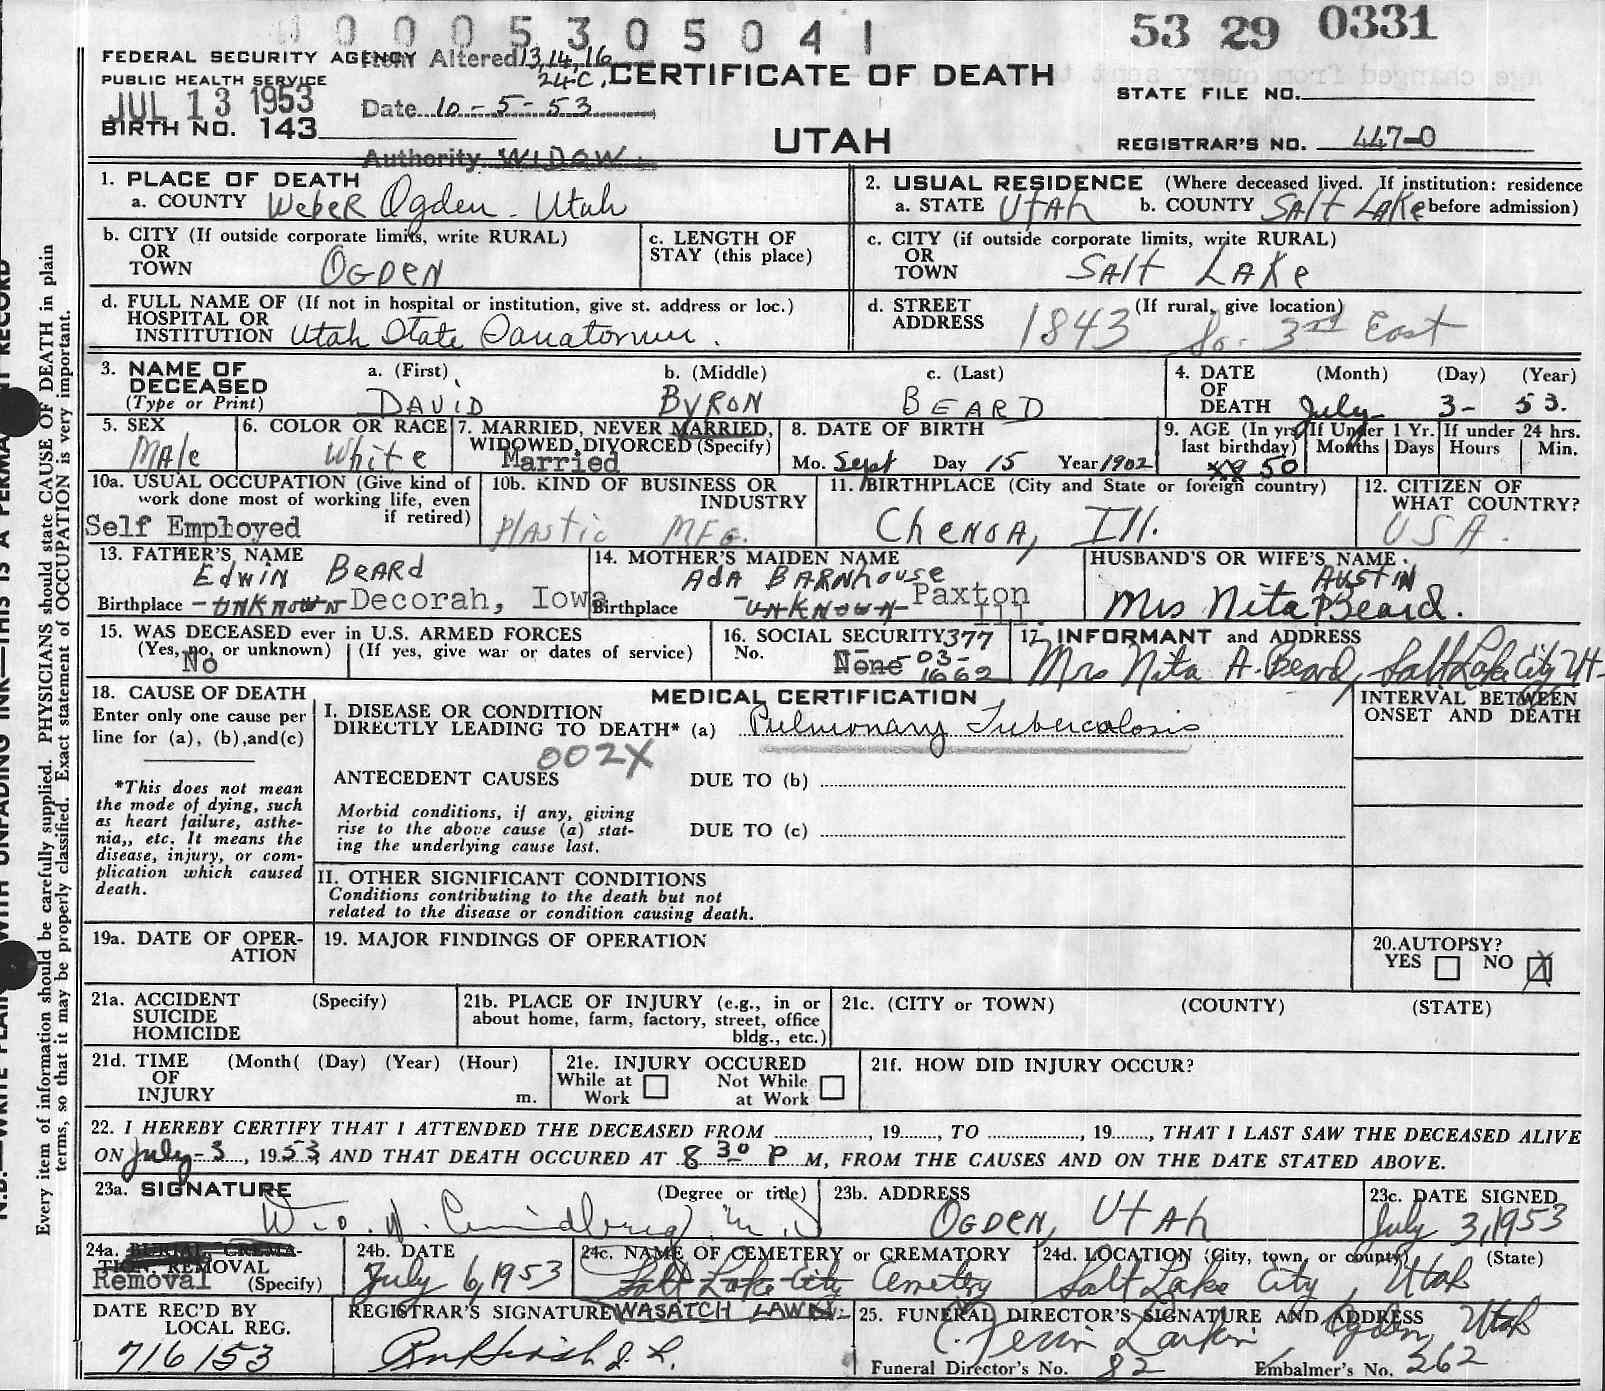 0 0 0 5 3 0 5 0 4 1
53 29 0331
FEDERAL SECURITY AGENCY
Item Altered 13,14,16
PUBLIC HEALTH SERVICE
24-C,
CERTIFICATE OF DEATH
STATE FILE NO.
JUL 13 1953
Date 10-5-53
BIRTH NO. 143
UTAH
REGISTRAR'S NO. 447-0
Authority WIDOW
1. PLACE OF DEATH
a. COUNTY Weber Ogden - Utah
2. USUAL RESIDENCE (Where deceased lived. If institution: residence
a. STATE Utah b. COUNTY Salt Lake before admission)
b. CITY (If outside corporate limits, write RURAL)
OR
TOWN Ogden
c. LENGTH OF
STAY (this place)
c. CITY (if outside corporate limits, write RURAL)
OR
TOWN Salt Lake
d. FULL NAME OF (If not in hospital or institution, give st. address or loc.)
HOSPITAL OR
INSTITUTION Utah State Sanatorium.
d. STREET (If rural, give location)
ADDRESS 1843 So. 3rd East
3. NAME OF
DECEASED
(Type or Print)
a. (First) b. (Middle) c. (Last)
DAVID BYRON BEARD
4. DATE (Month) (Day) (Year)
OF
DEATH July 3- 53.
5. SEX
Male
6. COLOR OR RACE
White
7. MARRIED, NEVER MARRIED,
WIDOWED, DIVORCED (Specify)
Married
8. DATE OF BIRTH
Mo. Sept Day 15 Year 1902
9. AGE (In yrs.
last birthday)
50
If Under 1 Yr.
Months Days
If under 24 hrs.
Hours Min.
10a. USUAL OCCUPATION (Give kind of
work done most of working life, even
if retired)
Self Employed
10b. KIND OF BUSINESS OR
INDUSTRY
Plastic MFG.
11. BIRTHPLACE (City and State or foreign country)
Chenoa, Ill.
12. CITIZEN OF
WHAT COUNTRY?
USA.
13. FATHER'S NAME
Edwin Beard
Birthplace UNKNOWN Decorah, Iowa
14. MOTHER'S MAIDEN NAME
Ada Barnhouse
Birthplace UNKNOWN Paxton
Ill.
HUSBAND'S OR WIFE'S NAME
AUSTIN
Mrs Nita Beard.
15. WAS DECEASED ever in U.S. ARMED FORCES
(Yes, no, or unknown) (If yes, give war or dates of service)
No
16. SOCIAL SECURITY 377
No. None 03-
1662
17. INFORMANT and ADDRESS
Mrs Nita A. Beard, Salt Lake City Ut-
18. CAUSE OF DEATH
Enter only one cause per
line for (a), (b), and (c)
*This does not mean
the mode of dying, such
as heart failure, asthe-
nia,, etc. It means the
disease, injury, or com-
plication which caused
death.
MEDICAL CERTIFICATION
I. DISEASE OR CONDITION
DIRECTLY LEADING TO DEATH* (a) Pulmonary Tuberculosis
002X
ANTECEDENT CAUSES DUE TO (b)
Morbid conditions, if any, giving
rise to the above cause (a) stat-
ing the underlying cause last.
DUE TO (c)
INTERVAL BETWEEN
ONSET AND DEATH
II. OTHER SIGNIFICANT CONDITIONS
Conditions contributing to the death but not
related to the disease or condition causing death.
19a. DATE OF OPER-
ATION
19. MAJOR FINDINGS OF OPERATION
20. AUTOPSY?
YES NO X
21a. ACCIDENT (Specify)
SUICIDE
HOMICIDE
21b. PLACE OF INJURY (e.g., in or
about home, farm, factory, street, office
bldg., etc.)
21c. (CITY or TOWN) (COUNTY) (STATE)
21d. TIME (Month( (Day) (Year) (Hour)
OF
INJURY m.
21e. INJURY OCCURED
While at Work Not While at Work
21f. HOW DID INJURY OCCUR?
22. I HEREBY CERTIFY THAT I ATTENDED THE DECEASED FROM , 19 , TO , 19 , THAT I LAST SAW THE DECEASED ALIVE
ON July-3, 1953, AND THAT DEATH OCCURED AT 8 30 P M, FROM THE CAUSES AND ON THE DATE STATED ABOVE.
23a. SIGNATURE (Degree or title)
M.D
23b. ADDRESS
Ogden, Utah
23c. DATE SIGNED
July 3, 1953
24a. BURIAL, CREMA-
TION, REMOVAL
Removal (Specify)
24b. DATE
July 6, 1953
24c. NAME OF CEMETERY or CREMATORY
Salt Lake City Cemetery
WASATCH LAWN
24d. LOCATION (City, town, or county) (State)
Salt Lake City, Utah
DATE REC'D BY
LOCAL REG.
7/6/53
REGISTRAR'S SIGNATURE
25. FUNERAL DIRECTOR'S SIGNATURE AND ADDRESS
Larkin Ogden, Utah
Funeral Director's No. 82 Embalmer's No. 262
Every item of information should be carefully supplied. PHYSICIANS should state CAUSE OF DEATH in plain
terms, so that it may be properly classified. Exact statement of OCCUPATION is very important.